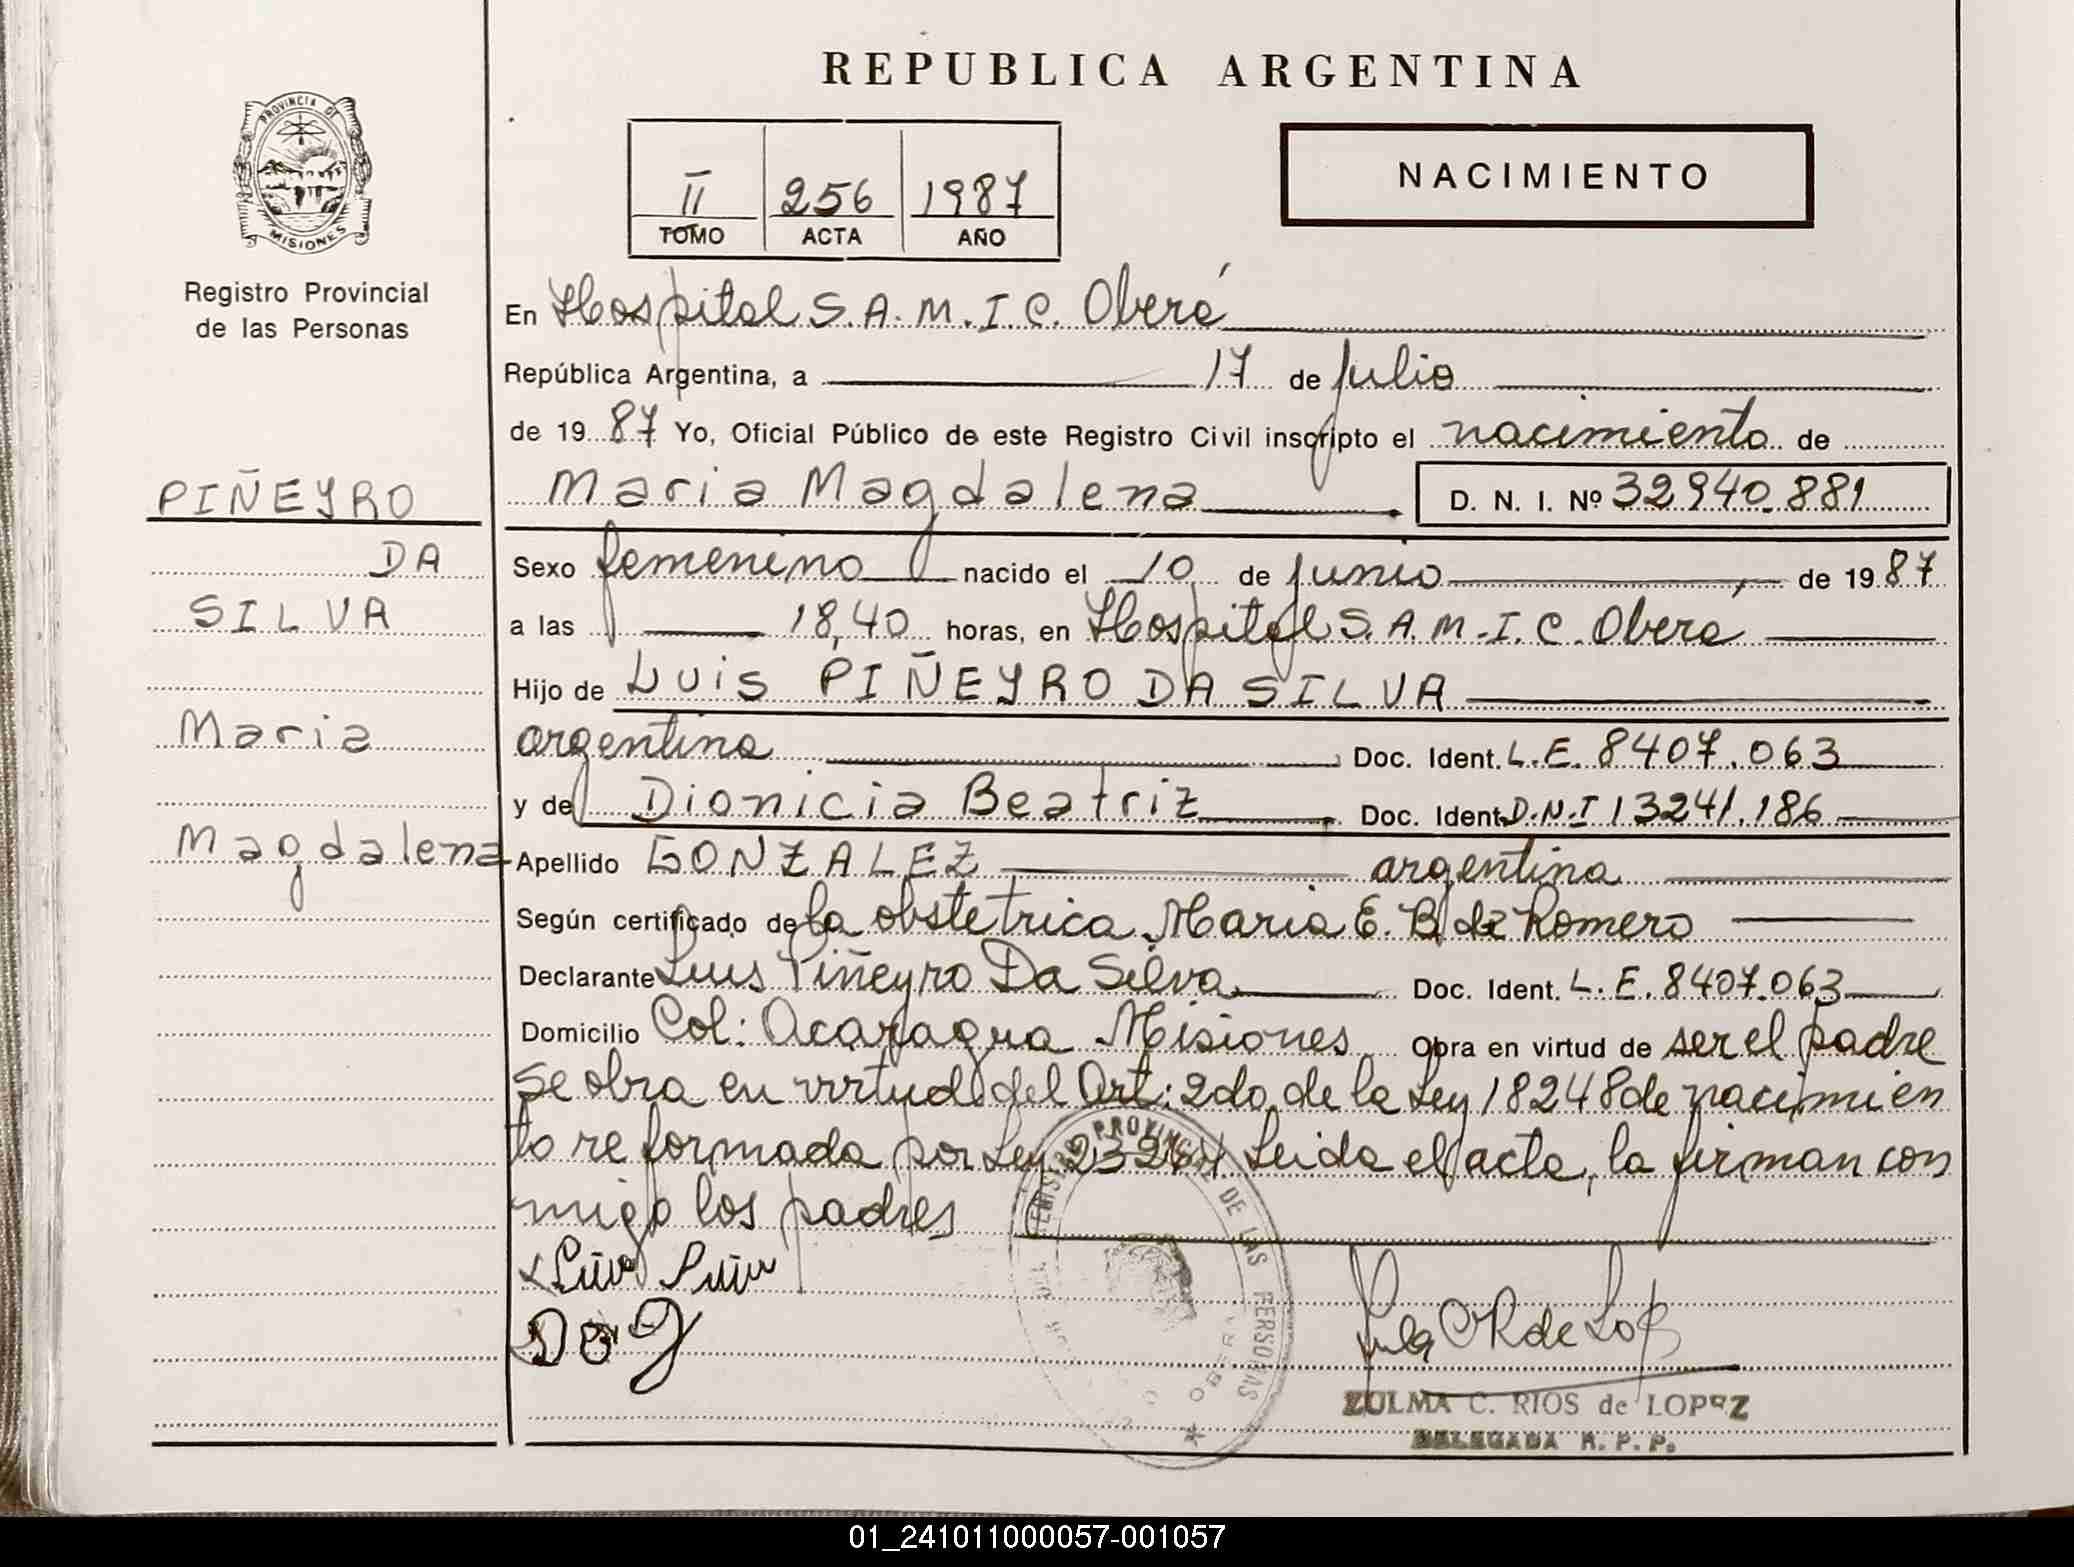 REPUBLICA ARGENTINA
PROVINCIA DE
MISIONES
Registro Provincial
de las Personas
II 256 1987
TOMO ACTA AÑO
NACIMIENTO
En Hospital S.A.M.I.C. Oberá
República Argentina, a 17 de julio
de 19 87 Yo, Oficial Público de este Registro Civil inscripto el nacimiento de
Maria Magdalena D. N. I. Nº 32940.881
PIÑEYRO
DA
SILVA
Maria
Magdalena
Sexo femenino nacido el 10 de junio, de 19 87
a las 18,40 horas, en Hospital S.A.M.I.C. Oberá
Hijo de Luis PIÑEYRO DA SILVA
argentina Doc. Ident. L.E. 8407.063
y de Dionicia Beatriz Doc. Ident. D.N.I 13241.186
Apellido GONZALEZ argentina
Según certificado de la obstetrica Maria E. B de Romero
Declarante Luis Piñeyro Da Silva Doc. Ident. L.E. 8407.063
Domicilio Col: Acaragua Misiones Obra en virtud de ser el padre
Se obra en virtud del Art: 2do de la Ley 18248 de nacimien
to reformada por Ley 23264. Leida el acta, la firman con
migo los padres
REGISTRO PROVINCIAL DE LAS PERSONAS
OBERA
ZULMA C. RIOS de LOPEZ
DELEGADA R. P. P.
01_241011000057-001057